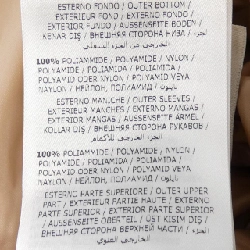 ESTERNO FONDO / OUTER BOTTOM /
EXTERIEUR FOND / EXTERNO FONDO /
EXTERIOR FUNDO / AUSSENSEITE BODEN /
KENAR DIŞ / ВНЕШНЯЯ СТОРОНА НИЗА /
الخارجي من الجزء السفلي
100% POLIAMMIDE / POLYAMIDE / NYLON /
POLYAMIDE / POLIAMIDA / POLIAMIDA /
POLYAMID ODER NYLON / POLYAMID VEYA
NAYLON / НЕЙЛОН, ПОЛИАМИД / نايلون
ESTERNO MANICHE / OUTER SLEEVES /
EXTERIEUR MANCHES / EXTERNO MANGAS /
EXTERIOR MANGAS / AUSSENSEITE ÄRMEL /
KOLLAR DIŞ / ВНЕШНЯЯ СТОРОНА РУКАВОВ /
الخارجي للأكمام
100% POLIAMMIDE / POLYAMIDE / NYLON /
POLYAMIDE / POLIAMIDA / POLIAMIDA /
POLYAMID ODER NYLON / POLYAMID VEYA
NAYLON / НЕЙЛОН, ПОЛИАМИД / نايلون
ESTERNO PARTE SUPERIORE / OUTER UPPER
PART / EXTERIEUR PARTIE HAUTE / EXTERNO
PARTE SUPERIOR / EXTERIOR PARTE SUPERIOR
/ AUSSENSEITE OBERTEIL / ÜST KISIM DIŞ /
ВНЕШНЯЯ СТОРОНА ВЕРХНЕЙ ЧАСТИ /
الخارجي العلوي